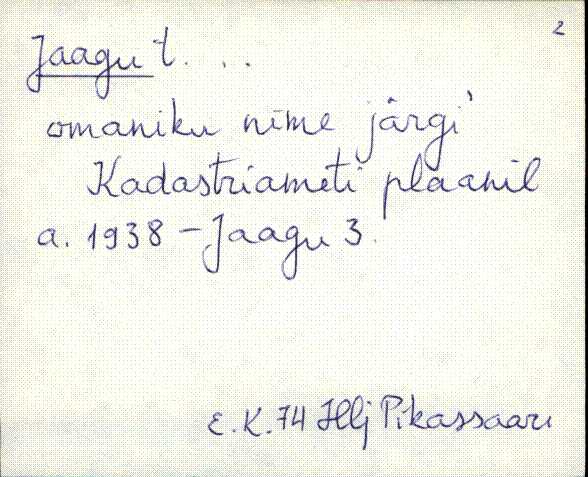 2
Jaagu t. ..
omaniku nime järgi'
Kadastriameti plaanil
a. 1938 – Jaagu 3.
E.K. 74 Hlj Pikassaare